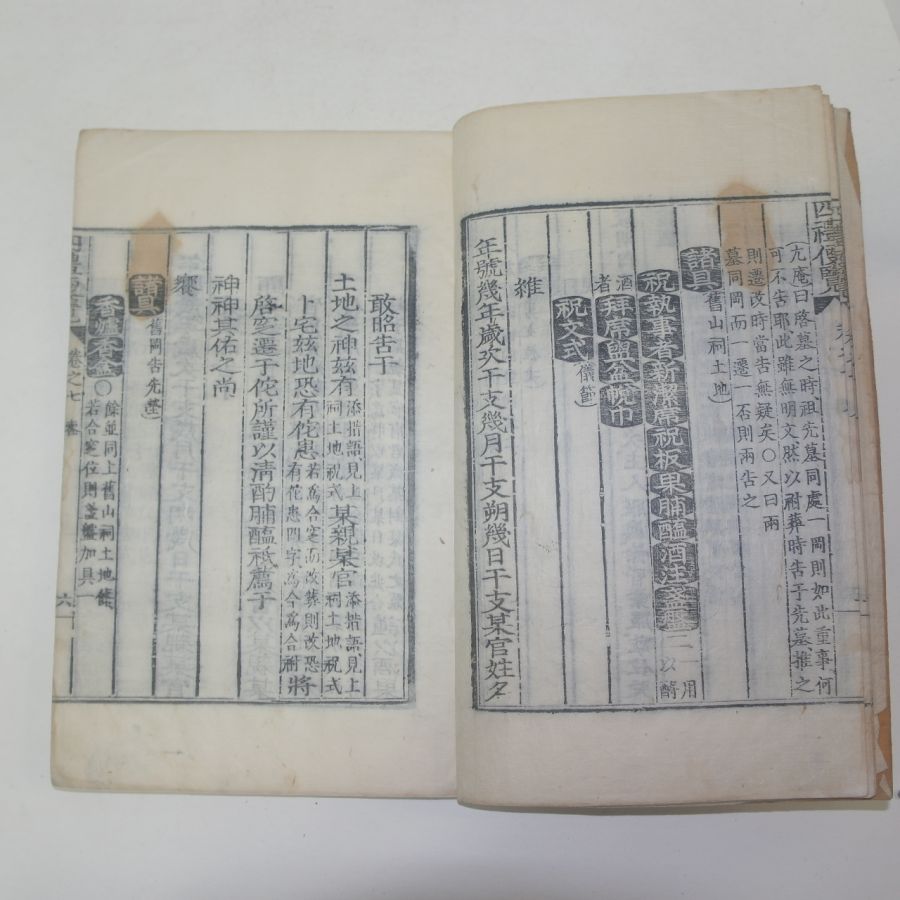 四禮便覽
尤庵曰啓墓之時祖先墓同處一岡則如此重事何
可不告耶此雖無明文然以祔葬時告于先墓推之
則遷改時當告無疑矣○又曰兩
墓同岡而一遷一否則兩告之
諸具 舊山祠土地
祝執事者新潔席祝板果脯醢酒注盞盤二 一用以酹
酒者 拜席盥盆帨巾
祝文式 儀節
維
年號幾年歲次干支幾月干支朔幾日干支某官姓名
敢昭告于
土地之神茲有 添措語見上祠土地祝式 某親某官 添措語見上祠土地祝式
卜宅茲地恐有侘患 若爲合窆而改葬則改恐有侘患四字爲合祔 將
啓窆遷于侘所謹以清酌脯醢祗薦于
神神其佑之尚
饗
諸具 舊岡告先塋
香爐香盒 ○ 餘並同上舊山祠土地條若合窆位則盞盤加具一
卷之七 六